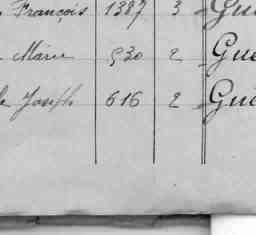 François 1387 3 Gu
Marie 530 2 Gue
Joseph 616 2 Gue